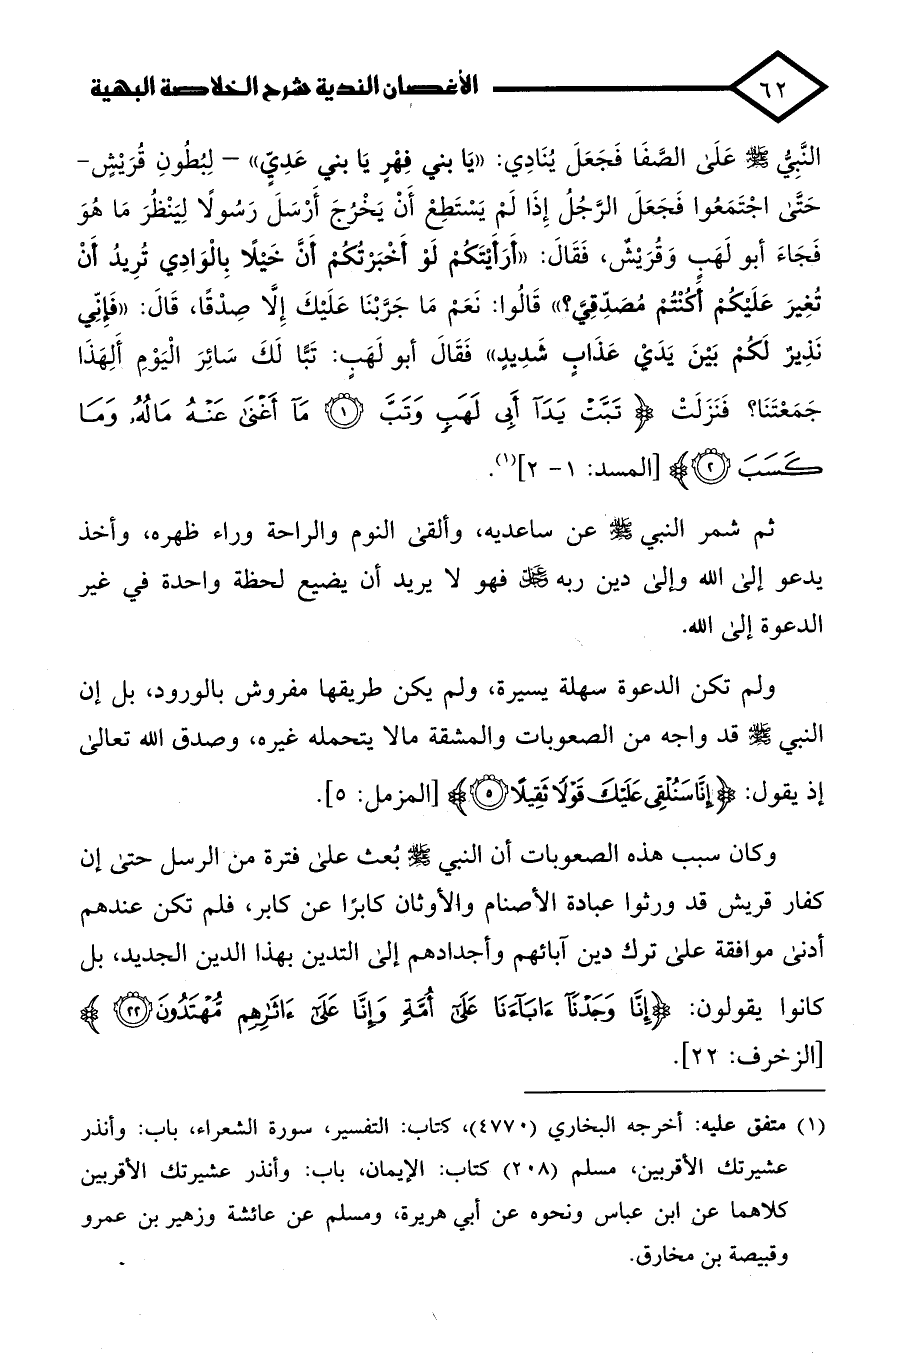 ٦٢
الأغصان الندية شرح الخلاصة البهية
النَّبِيُّ ﷺ عَلَىٰ الصَّفَا فَجَعَلَ يُنَادِي: «يَا بني فِهْرٍ يَا بني عَدِيّ» – لِبُطُونِ قُرَيْشٍ–
حَتَّى اجْتَمَعُوا فَجَعَلَ الرَّجُلُ إِذَا لَمْ يَسْتَطِعْ أَنْ يَخْرُجَ أَرْسَلَ رَسُولًا لِيَنْظُرَ مَا هُوَ
فَجَاءَ أبو لَهَبٍ وَقُرَيْشٌ، فَقَالَ: «أَرَأَيْتَكُمْ لَوْ أَخْبَرْتُكُمْ أَنَّ خَيْلًا بِالْوَادِي تُرِيدُ أَنْ
تُغِيرَ عَلَيْكُمْ أَكُنْتُمْ مُصَدِّقِيَّ؟» قَالُوا: نَعَمْ مَا جَرَّبْنَا عَلَيْكَ إِلَّا صِدْقًا، قَالَ: «فَإِنِّي
نَذِيرٌ لَكُمْ بَيْنَ يَدَيْ عَذَابٍ شَدِيدٍ» فَقَالَ أبو لَهَبٍ: تَبًّا لَكَ سَائِرَ الْيَوْمِ أَلِهَذَا
جَمَعْتَنَا؟ فَنَزَلَتْ ﴿ تَبَّتْ يَدَآ أَبِى لَهَبٍ وَتَبَّ ١ مَآ أَغْنَىٰ عَنْهُ مَالُهُۥ وَمَا
كَسَبَ ٢﴾ [المسد: ١- ٢](١).
ثم شمر النبي ﷺ عن ساعديه، وألقىٰ النوم والراحة وراء ظهره، وأخذ
يدعو إلىٰ الله وإلىٰ دين ربه ﷻ فهو لا يريد أن يضيع لحظة واحدة في غير
الدعوة إلىٰ الله.
ولم تكن الدعوة سهلة يسيرة، ولم يكن طريقها مفروش بالورود، بل إن
النبي ﷺ قد واجه من الصعوبات والمشقة مالا يتحمله غيره، وصدق الله تعالىٰ
إذ يقول: ﴿إِنَّا سَنُلْقِى عَلَيْكَ قَوْلًا ثَقِيلًا ٥﴾ [المزمل: ٥].
وكان سبب هذه الصعوبات أن النبي ﷺ بُعث علىٰ فترة من الرسل حتىٰ إن
كفار قريش قد ورثوا عبادة الأصنام والأوثان كابرًا عن كابر، فلم تكن عندهم
أدنىٰ موافقة علىٰ ترك دين آبائهم وأجدادهم إلىٰ التدين بهذا الدين الجديد، بل
كانوا يقولون: ﴿إِنَّا وَجَدْنَآ ءَابَآءَنَا عَلَىٰٓ أُمَّةٍ وَإِنَّا عَلَىٰٓ ءَاثَٰرِهِم مُّهْتَدُونَ ٢٢ ﴾
[الزخرف: ٢٢].
(١) متفق عليه: أخرجه البخاري (٤٧٧٠)، كتاب: التفسير، سورة الشعراء، باب: وأنذر
عشيرتك الأقربين، مسلم (٢٠٨) كتاب: الإيمان، باب: وأنذر عشيرتك الأقربين
كلاهما عن ابن عباس ونحوه عن أبي هريرة، ومسلم عن عائشة وزهير بن عمرو
وقبيصة بن مخارق.